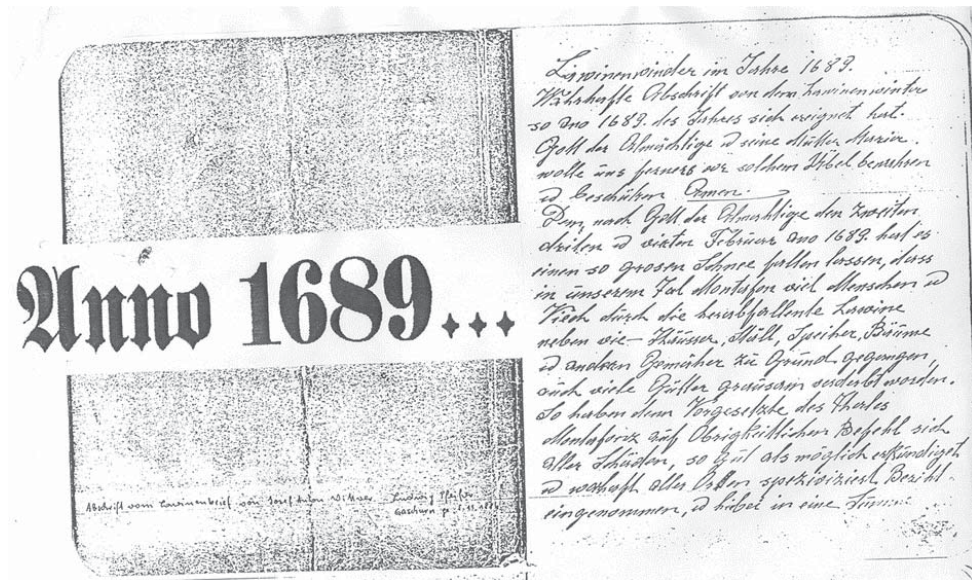 Anno 1689...
Abschrift vom Lawinenbrief von Josef Anton Wittwer Ludwig Pfeifer
Gaschurn
Lawinenwinder im Jahre 1689.
Wahrhafte Abschrift von dem Lawinenwinter
so Ano 1689. des Jahres sich ereignet hat.
Gott der Almächtige u seine Mutter Maria
wolle uns ferners vor solchem Übel bewahren
u beschützen Amen.
Den, nach Gott der Almachtige den zweiten
driten u vierten Februar Ano 1689. hat es
einen so grosen Schnee fallen lassen, dass
in unserem Tal Montafon viel Menschen u
Viech durch die herabfallente Lawine
neben vie— Häusser, Ställ, Speicher, Bäume
u andren Gemächer zu Grund gegangen,
auch viele Gütter grausam verderbt worden.
So haben dem Vorgesetzte des Thales
Montafonz auf Obrigkeitlichen Befehl sich
aller Schäden, so gut als möglich erkündiget
u warhaft aller Orten speziviziert Bericht
eingenommen, u hibei in eine